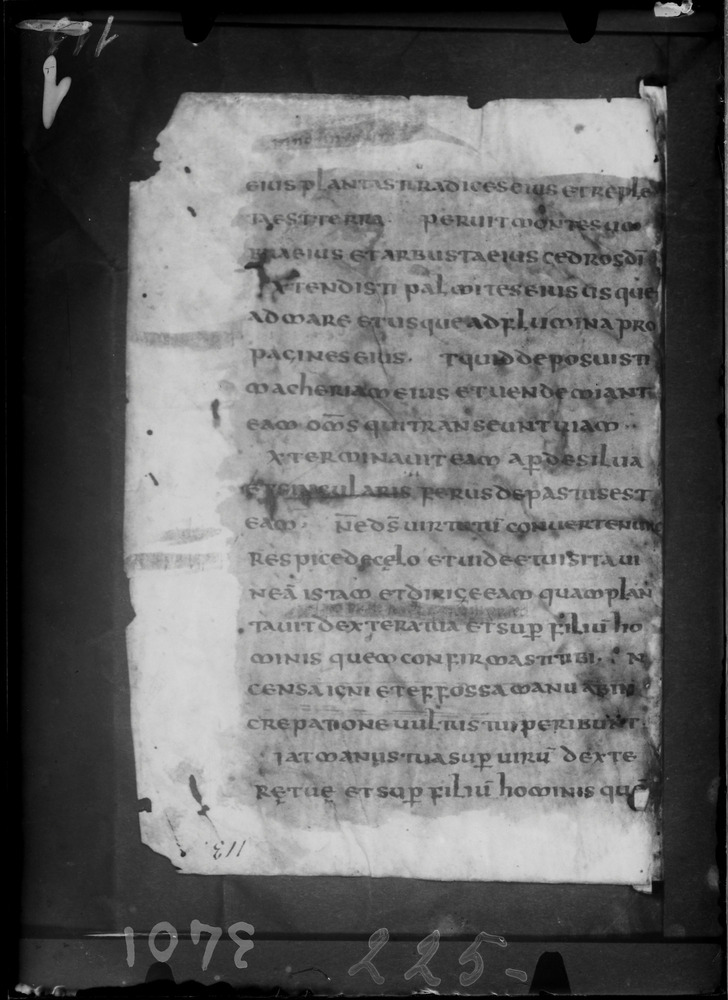 eius plantasti radices eius et reple
ta est terra peruit montes um
bra eius et arbusta eius cedros dī
xtendisti palmites eius usque
ad mare et usque ad flumina pro
pagines eius. tquid deposuisti
macheriam eius et uendemiant
eam om̄s qui transeunt uiam
xterminauit eam ap̄ de silua
et singularis ferus depastus est
eam. n̄e ds̄ uirtutū conuertere
respice de cęlo et uide et uisita ui
neā istam et dirige eam quam plan
tauit dextera tua et sup̄ filiū ho
minis quem confirmasti tibi. N
censa igni et effossa manu ab in
crepatione uultus tui peribunt.
iat manus tua sup̄ uirū dexte
rę tuę et sup̄ filiū hominis quē
113.
1073
225-